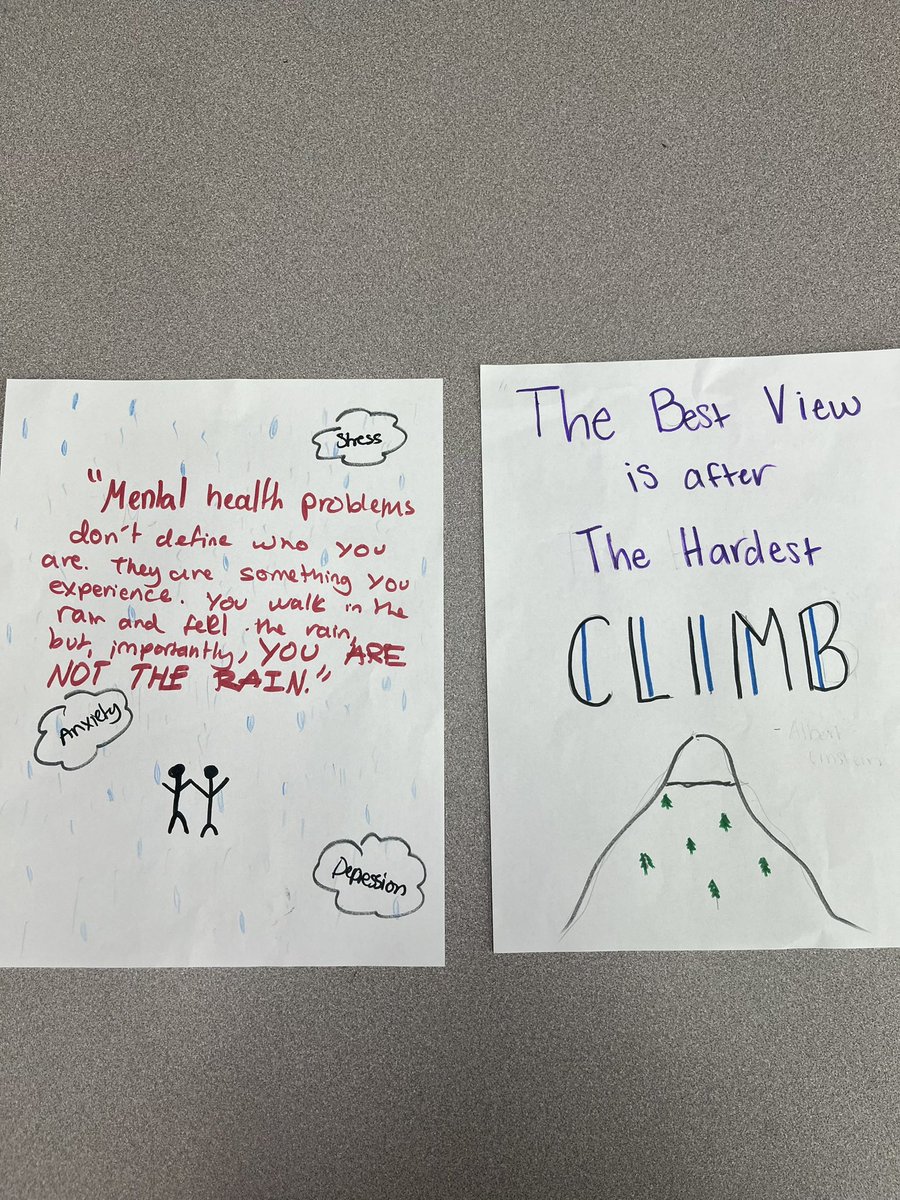 Stress
"Mental health problems
don't define who you
are. They are something you
experience. You walk in the
rain and feel the rain,
but, importantly, YOU ARE
NOT THE RAIN."
Anxiety
Depression
The Best View
is after
The Hardest
CLIMB
- Albert
Einstein